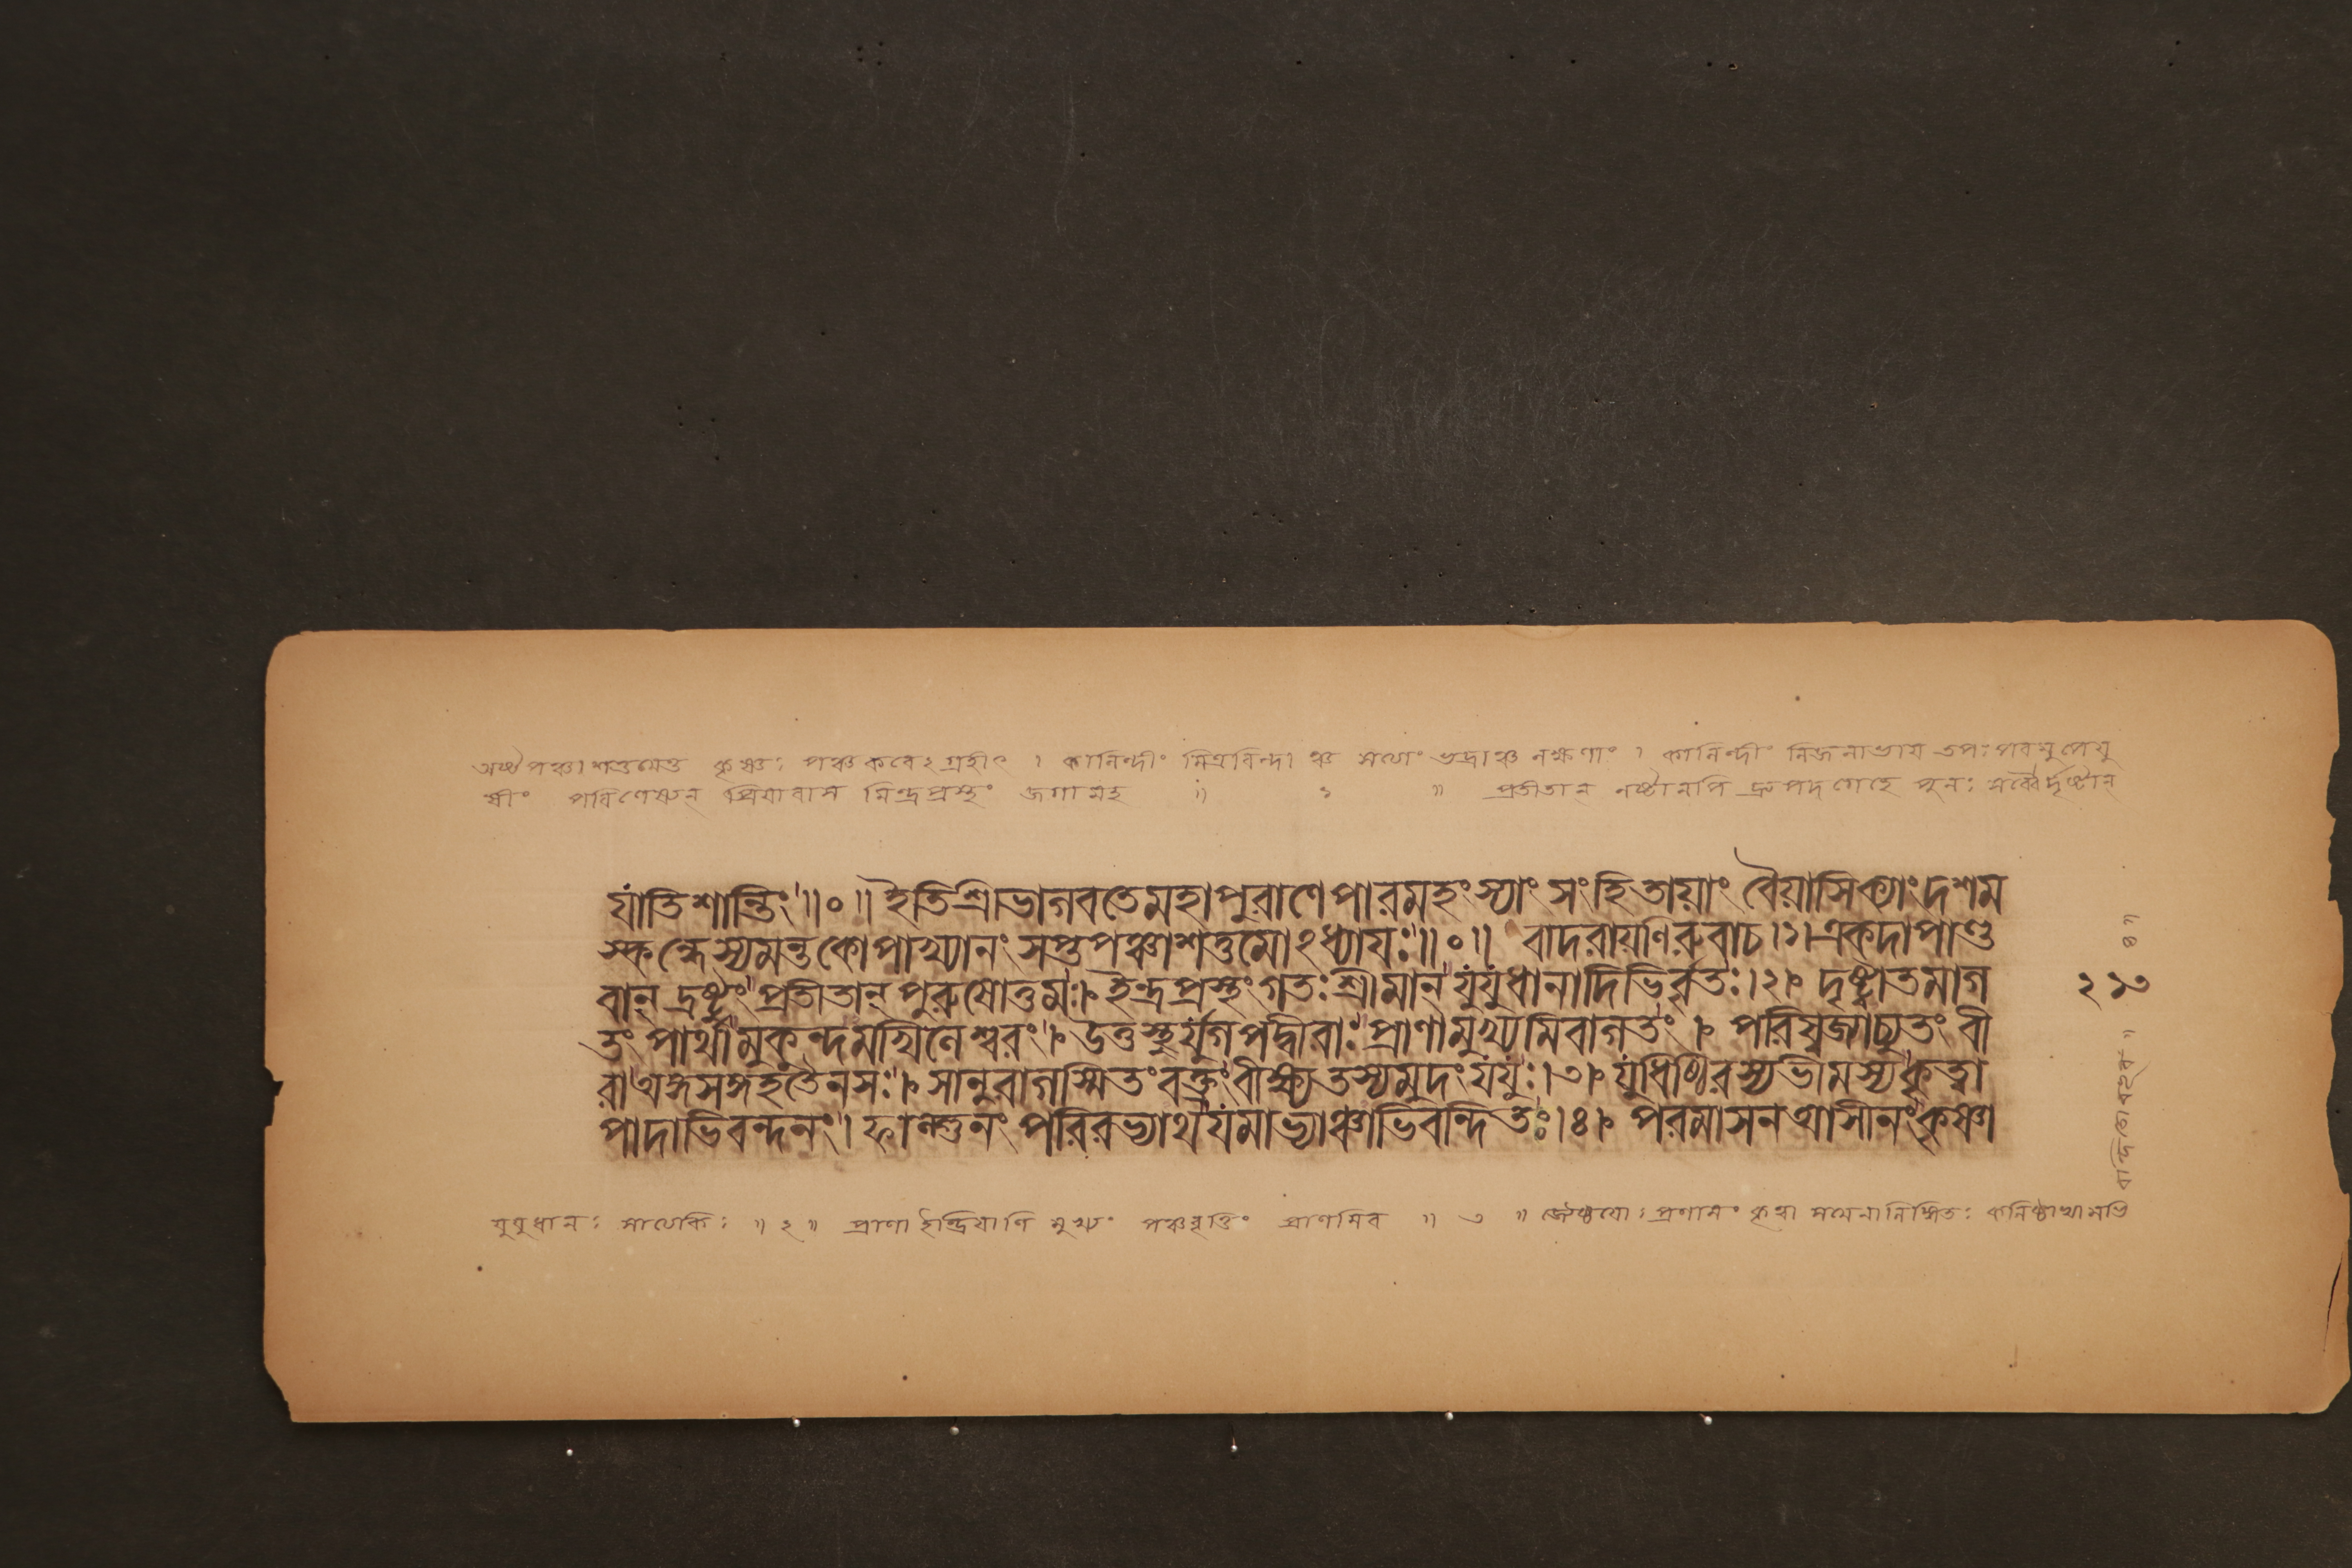 অষ্টপঞ্চাশত্তমেতু কৃষ্ণঃ পঞ্চকরেঽগ্রহীৎ । কালিন্দীং মিত্রবিন্দাঞ্চ সত্যাং ভদ্রাঞ্চ লক্ষণাং । কালিন্দীং নিজলাভায় তপঃপরমুপেয়ু
ষীং পরিণেষ্যন্ প্রিয়াবাস মিন্দ্রপ্রস্থং জগামহ ॥ ১ ॥ প্রতীতান্ নষ্টানপি দ্রুপদগেহে পুনঃ সর্ব্বৈর্দৃষ্টান্
যাতিশান্তিং ॥০॥ ইতিশ্রীভাগবতেমহাপুরাণেপারমহংস্যাং সংহিতায়াং বৈয়াসিক্যাংদশম
স্কন্ধেস্যমন্তকোপাখ্যানং সপ্তপঞ্চাশত্তমোঽধ্যায়ঃ॥০॥ বাদরায়ণিরুবাচ ।১। একদাপাণ্ড
বান্ দ্রষ্টুং প্রতীতান্ পুরুষোত্তমঃ। ইন্দ্রপ্রস্থংগতঃশ্রীমান্ যুযুধানাদিভির্ব্বৃতঃ।২। দৃষ্ট্বাতমাগ
তং পার্থামুকুন্দমখিলেশ্বরং। উত্তস্থুর্যুগপদ্বীরাঃ প্রাণামুখ্যমিবাগতং । পরিষ্বজ্যাচ্যুতং বী
রাঅঙ্গসঙ্গহতৈনসঃ। সানুরাগস্মিতংবক্ত্রংবীক্ষ্যতস্যমুদংযযুঃ।৩। যুধিষ্ঠিরস্যভীমস্যকৃত্বা
পাদাভিবন্দনং। ফাল্গুনং পরিরভ্যাথযমাভ্যাঞ্চাভিবন্দিতঃ।৪। পরমাসনআসীনংকৃষ্ণা
২১৩
যুযুধানঃ সাত্যকিঃ ॥ ২ ॥ প্রাণা ইন্দ্রিয়াণি মুখ্যং পঞ্চবৃত্তিং প্রাণমিব ॥ ৩ ॥ জ্যেষ্ঠয়োঃপ্রণামং কৃত্বা সমেনালিঙ্গিতঃ কনিষ্ঠাভ্যামভি
বন্দিতো ॥ ৪ ॥